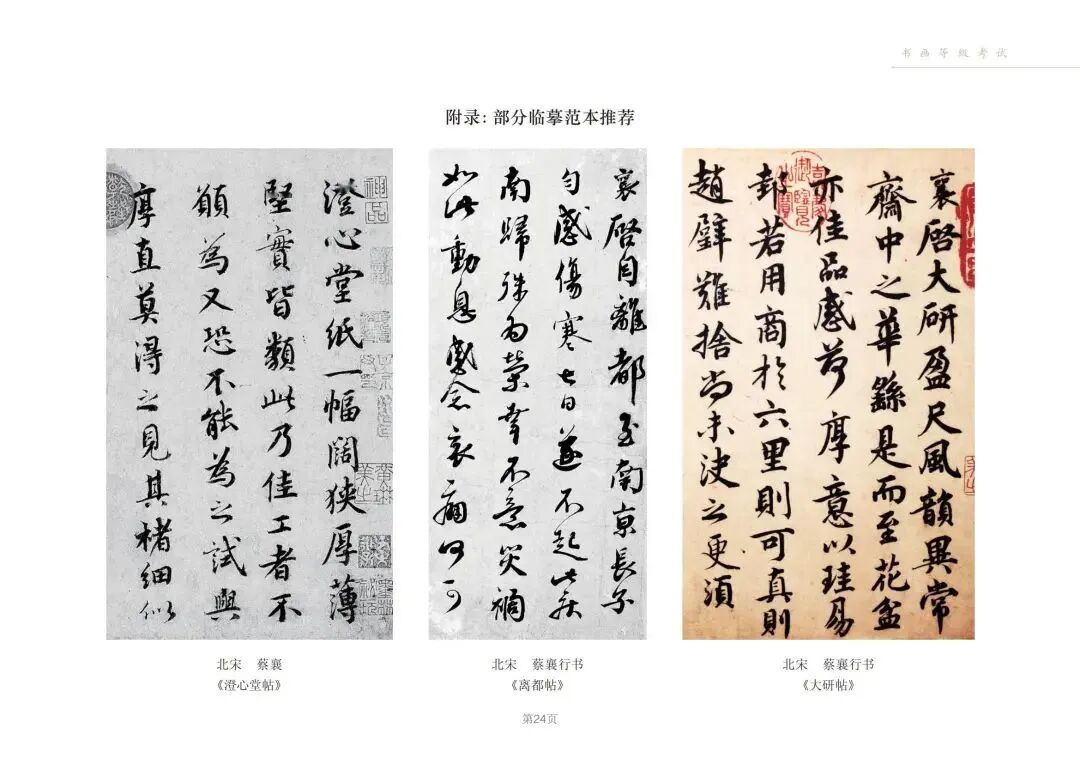 书画等级考试
附录：部分临摹范本推荐
澄心堂紙一幅闊狹厚薄
堅實皆類此乃佳工者不
願為又恐不能為之試與
厚直莫得之見其楮細似
神品
襄啓自離都至南京長子
勻感傷寒七日遂不起此疾
南歸殊為榮幸不意災禍
如此動息感念哀痛何可
襄啓大研盈尺風韻異常
齋中之華繇是而至花盆
亦佳品感荷厚意以珪易
邽若用商於六里則可真則
趙璧難捨尚未決之更須
北宋 蔡襄
《澄心堂帖》
北宋 蔡襄行书
《离都帖》
北宋 蔡襄行书
《大研帖》
第24页